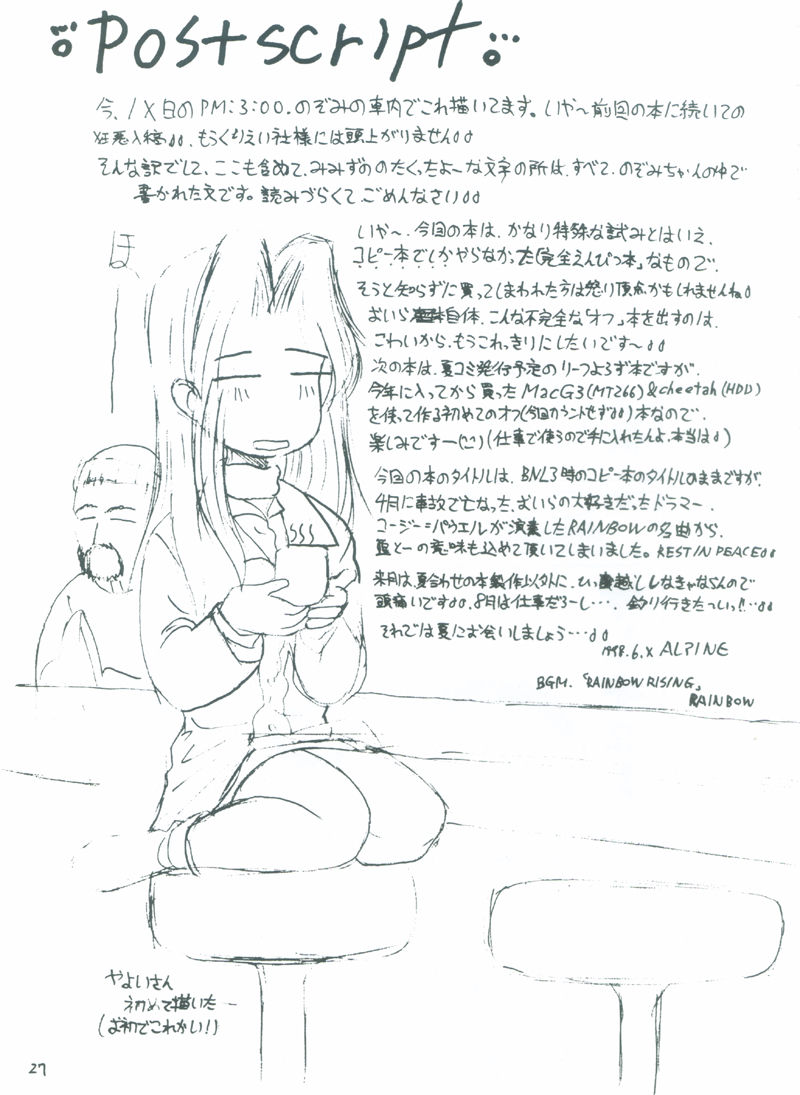 Postscript
今、1X日のPM:3:00.のぞみの車内でこれ描いてます。いや〜前回の本に続いての
狂悪入稿。もうくりえい社様には頭上がりません
そんな訳でして、ここも含めて、みみずののたくったよーな文字の所は、すべて、のぞみちゃんの中で
書かれた文です。読みづらくて、ごめんなさい
ほ
いや〜、今回の本は、かなり特殊な試みとはいえ、
コピー本でしかやらなかった「完全えんぴつ本」なもので、
そうと知らずに買ってしまわれた方は怒り頂点かもしれませんね
おいら自体、こんな不完全な「オフ」本を出すのは、
こわいから、もうこれっきりにしたいです〜
次の本は、夏コミ発行予定のリーフよろず本ですが、
今年に入ってから買ったMacG3(MT266)&cheetah(HDD)
を使って作る初めてのオフ(今回カウントせず)本なので、
楽しみですー(^^)(仕事で使うので手に入れたんよ、本当は)
今回の本のタイトルは、BNL3時のコピー本のタイトルのままですが、
4月に事故で亡なった、おいらの大好きだったドラマー、
コージー=パウエルが演奏したRAINBOWの名曲から、
追とーの意味も込めて頂いてしまいました。REST IN PEACE
来月は、夏合わせの本製作以外に、ひっ越ししなきゃならんので
頭痛いです。8月は仕事だろーし…、釣り行きたっいっ!!…
それでは夏にお会いしましょう…
1998.6.X ALPINE
BGM.「RAINBOW RISING」
RAINBOW
やよいさん
初めて描いた―
(お初でこれかい!)
27